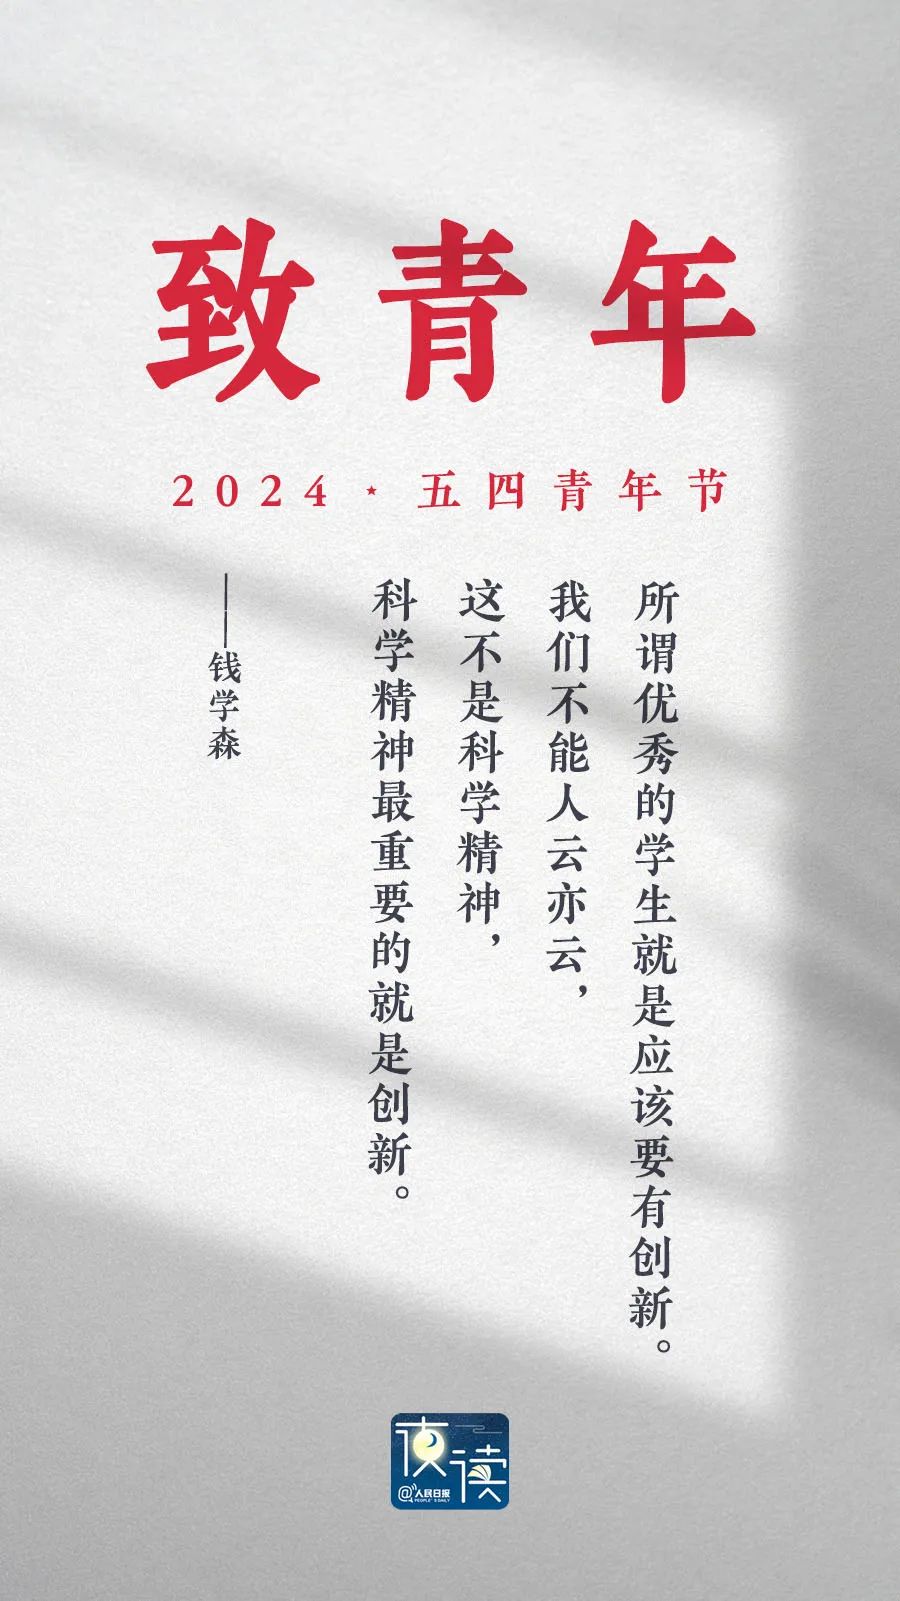 致青年
2024·五四青年节
所谓优秀的学生就是应该要有创新。
我们不能人云亦云，
这不是科学精神，
科学精神最重要的就是创新。
——钱学森
夜读
@人民日报
PEOPLE'S DAILY